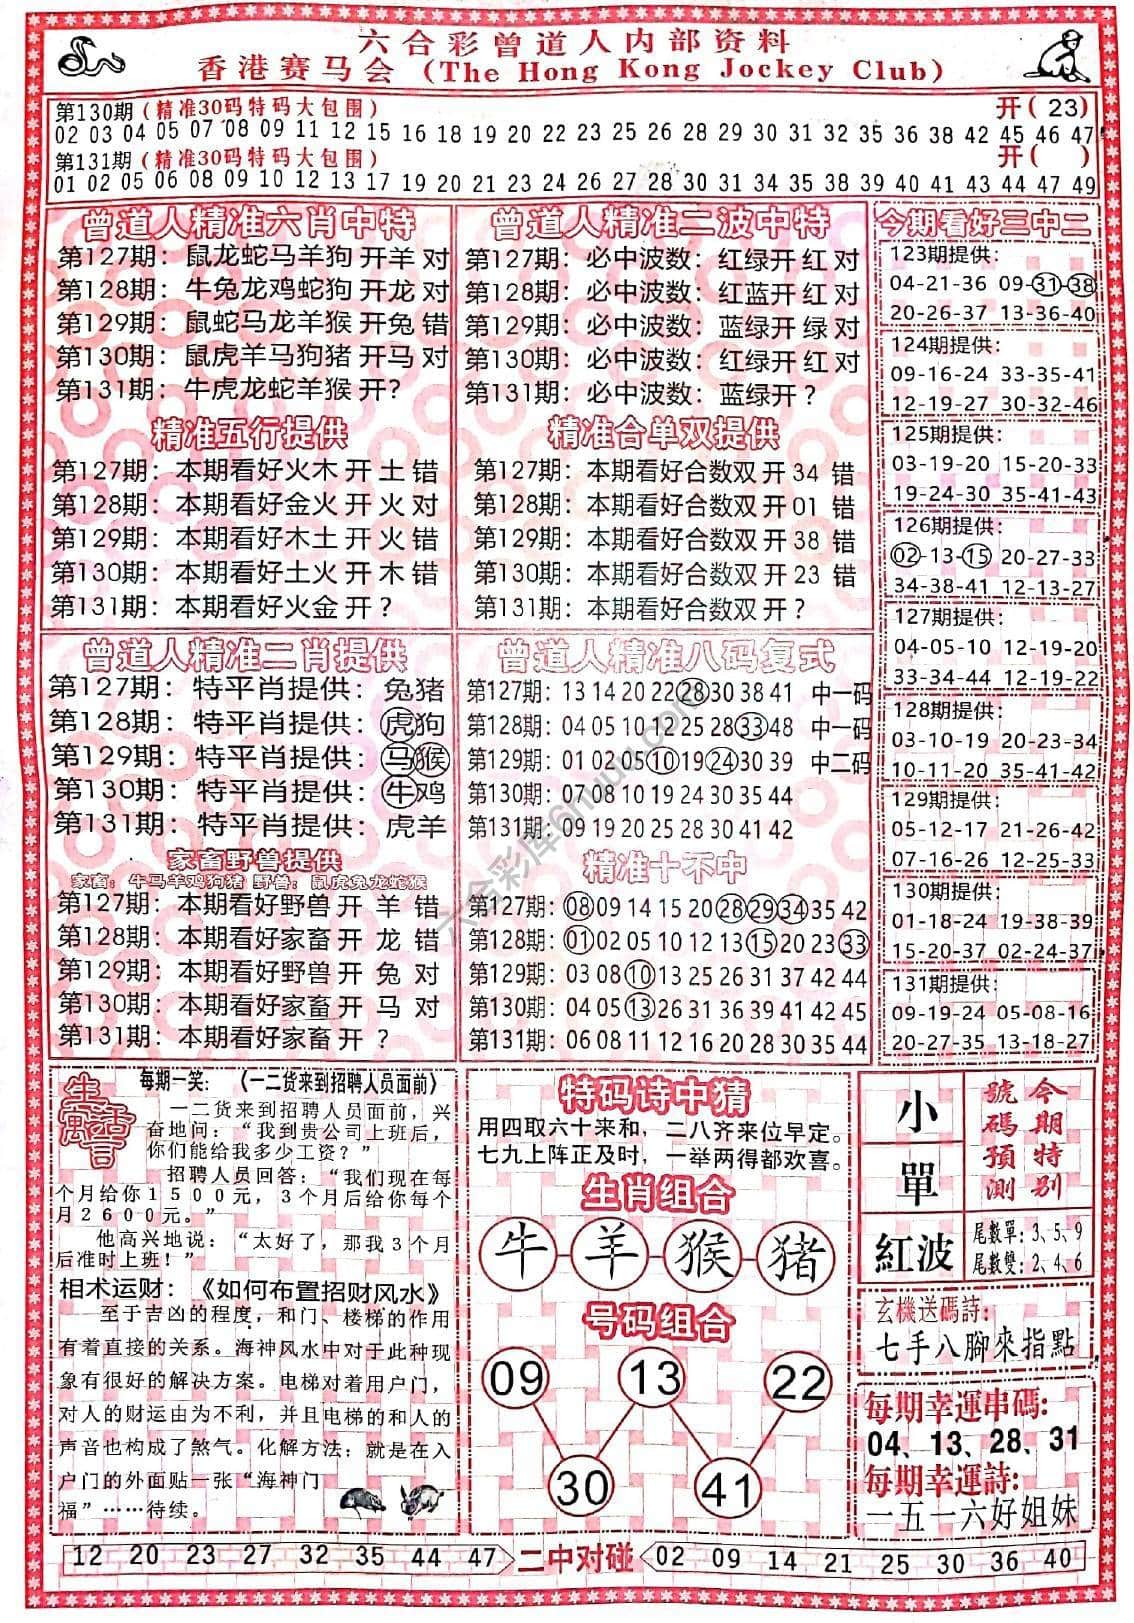 六合彩曾道人内部资料
香港赛马会 (The Hong Kong Jockey Club)
第130期(精准30码特码大包围) 开(23)
02 03 04 05 07 08 09 11 12 15 16 18 19 20 22 23 25 26 28 29 30 31 32 35 36 38 42 45 46 47
第131期(精准30码特码大包围) 开( )
01 02 05 06 08 09 10 12 13 17 19 20 21 23 24 26 27 28 30 31 34 35 38 39 40 41 43 44 47 49
曾道人精准六肖中特
第127期：鼠龙蛇马羊狗 开羊 对
第128期：牛兔龙鸡蛇狗 开龙 对
第129期：鼠蛇马龙羊猴 开兔 错
第130期：鼠虎羊马狗猪 开马 对
第131期：牛虎龙蛇羊猴 开？
精准五行提供
第127期：本期看好火木 开 土 错
第128期：本期看好金火 开 火 对
第129期：本期看好木土 开 火 错
第130期：本期看好土火 开 木 错
第131期：本期看好火金 开 ？
曾道人精准二波中特
第127期：必中波数：红绿开 红 对
第128期：必中波数：红蓝开 红 对
第129期：必中波数：蓝绿开 绿 对
第130期：必中波数：红绿开 红 对
第131期：必中波数：蓝绿开 ？
精准合单双提供
第127期：本期看好合数双 开 34 错
第128期：本期看好合数双 开 01 错
第129期：本期看好合数双 开 38 错
第130期：本期看好合数双 开 23 错
第131期：本期看好合数双 开？
今期看好三中二
123期提供：
04-21-36 09-31-38
20-26-37 13-36-40
124期提供：
09-16-24 33-35-41
12-19-27 30-32-46
125期提供：
03-19-20 15-20-33
19-24-30 35-41-43
126期提供：
02-13-15 20-27-33
34-38-41 12-13-27
127期提供：
04-05-10 12-19-20
33-34-44 12-19-22
128期提供：
03-10-19 20-23-34
10-11-20 35-41-42
129期提供：
05-12-17 21-26-42
07-16-26 12-25-33
130期提供：
01-18-24 19-38-39
15-20-37 02-24-37
131期提供：
09-19-24 05-08-16
20-27-35 13-18-27
曾道人精准二肖提供
第127期：特平肖提供：兔猪
第128期：特平肖提供：虎狗
第129期：特平肖提供：马猴
第130期：特平肖提供：牛鸡
第131期：特平肖提供：虎羊
家畜野兽提供
家畜：牛马羊鸡狗猪 野兽：鼠虎兔龙蛇猴
第127期：本期看好野兽 开 羊 错
第128期：本期看好家畜 开 龙 错
第129期：本期看好野兽 开 兔 对
第130期：本期看好家畜 开 马 对
第131期：本期看好家畜 开 ？
曾道人精准八码复式
第127期：13 14 20 22 28 30 38 41 中一码
第128期：04 05 10 12 25 28 33 48 中一码
第129期：01 02 03 10 19 24 30 39 中二码
第130期：07 08 10 19 24 30 35 44
第131期：09 19 20 25 28 30 41 42
精准十不中
第127期：08 09 14 15 20 28 29 34 35 42
第128期：01 02 05 10 12 13 15 20 23 33
第129期：03 08 10 13 25 26 31 37 42 44
第130期：04 05 13 26 31 36 39 41 42 45
第131期：06 08 11 12 16 20 28 30 35 44
生活寓言
每期一笑：（一二货来到招聘人员面前）
一二货来到招聘人员面前，兴
奋地问：“我到贵公司上班后，
你们能给我多少工资？”
招聘人员回答：“我们现在每
个月给你1500元，3个月后给你每个
月2600元。”
他高兴地说：“太好了，那我3个月
后准时上班！”
相术运财：《如何布置招财风水》
至于吉凶的程度，和门、楼梯的作用
有着直接的关系。海神风水中对于此种现
象有很好的解决方案。电梯对着用户门，
对人的财运由为不利，并且电梯的和人的
声音也构成了煞气。化解方法：就是在入
户门的外面贴一张“海神门
福”……待续。
特码诗中猜
用四取六十来和，二八齐来位早定。
七九上阵正及时，一举两得都欢喜。
生肖组合
牛 羊 猴 猪
号码组合
09 13 22
30 41
小
單
紅波
今期特别
號碼預测
尾數單：3、5、9
尾數雙：2、4、6
玄機送碼詩：
七手八腳來指點
每期幸運串碼：
04、13、28、31
每期幸運詩：
一五一六好姐妹
12 20 23 27 32 35 44 47 二中对碰 02 09 14 21 25 30 36 40
六合彩库6huu.com